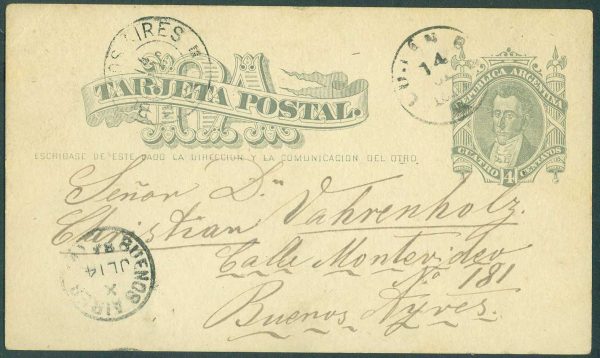 BUENOS AIRES
TARJETA POSTAL.
RA
LUJAN
14
REPUBLICA ARGENTINA
CUATRO 4 CENTAVOS
ESCRIBASE DE ESTE LADO LA DIRECCION Y LA COMUNICACION DEL OTRO
Señor Dn
Christian Vahrenholz.
Calle Montevideo
No 181
Buenos Ayres.
BUENOS AIRES
JL 14
X